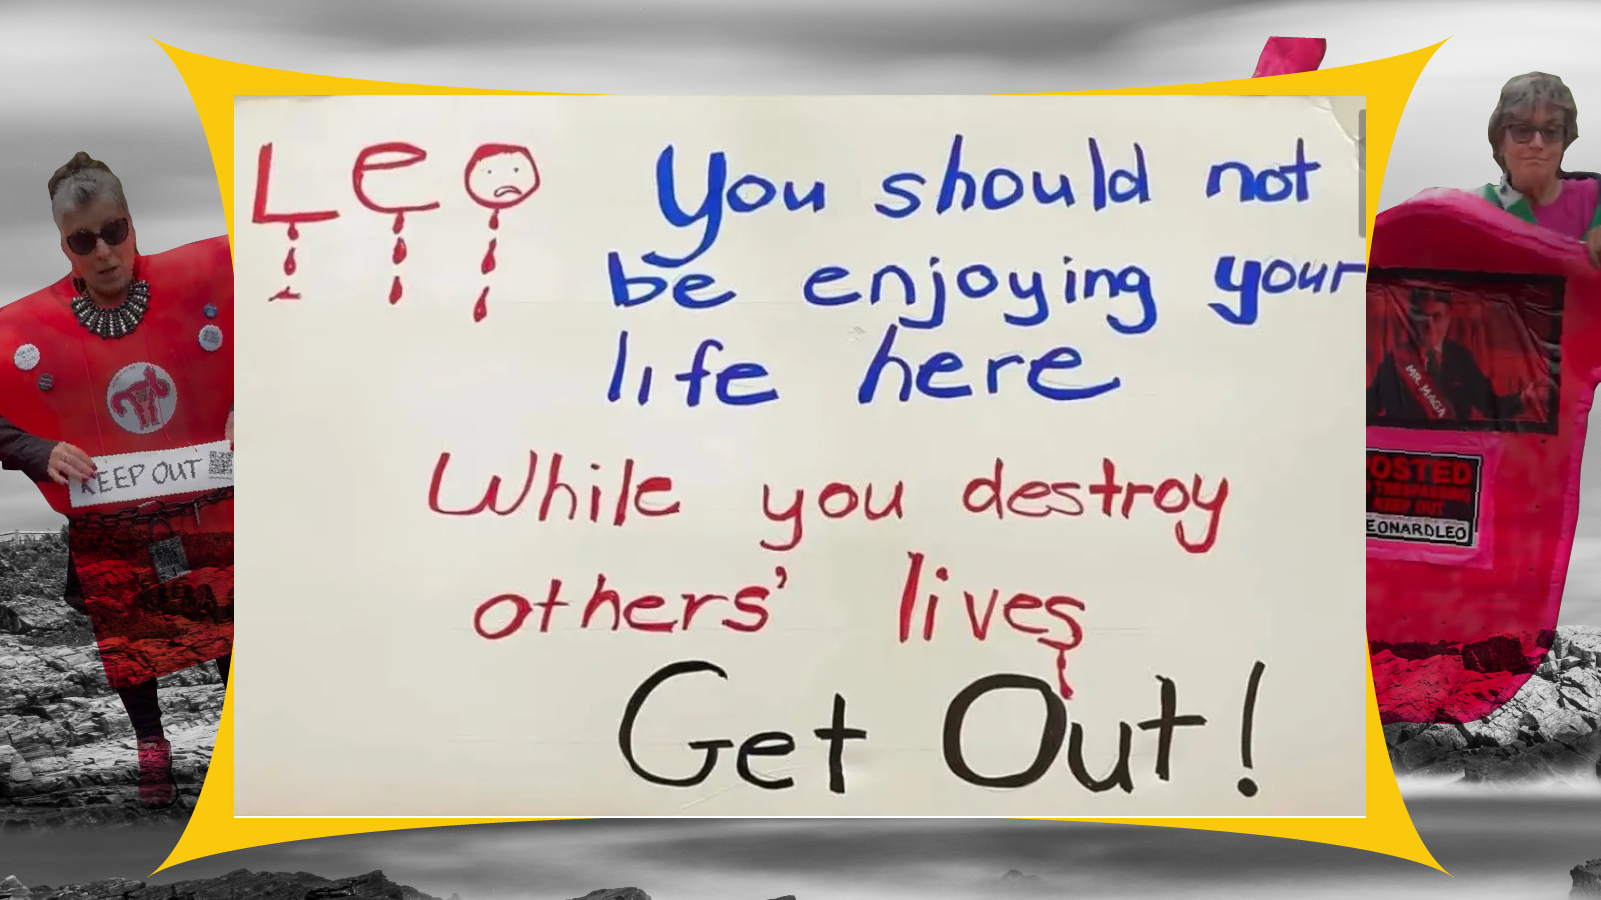 Leo You should not
be enjoying your
life here
While you destroy
others' lives
Get Out!
KEEP OUT
MR. MAGA
POSTED
OUT
EONARDLEO